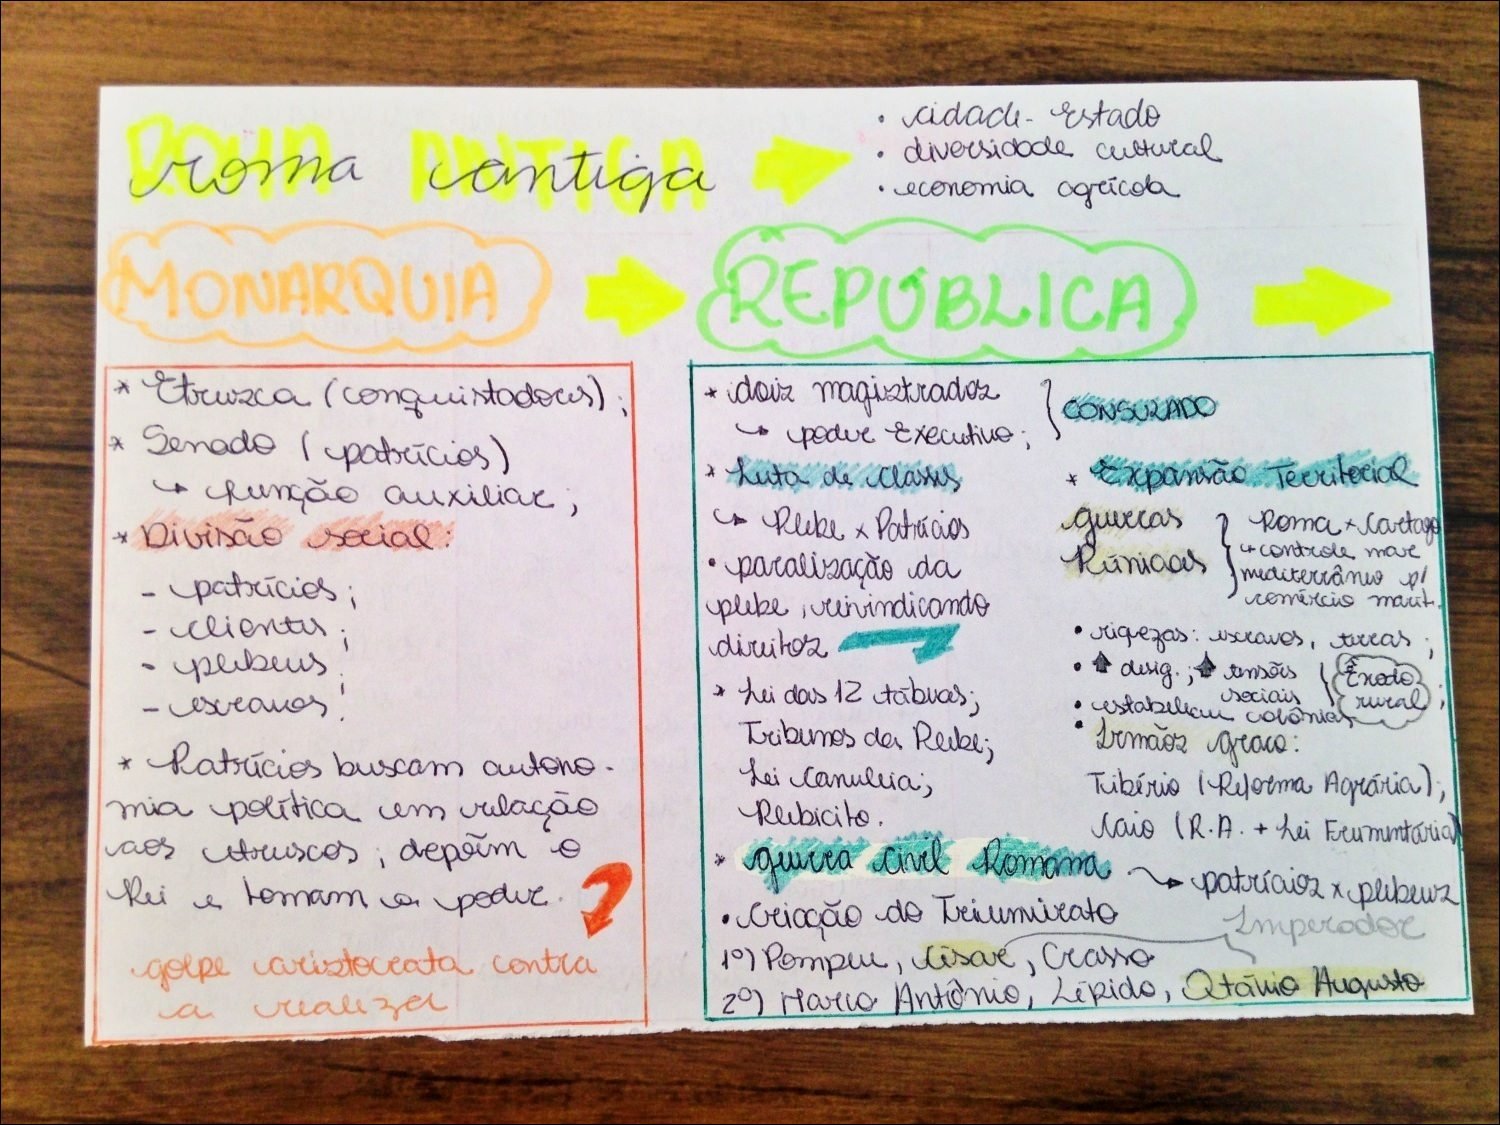 roma antiga
• cidade-Estado
• diversidade cultural
• economia agrícola
MONARQUIA
* Etrusca (conquistadores);
* Senado (patrícios)
↳ função auxiliar;
* Divisão social:
- patrícios;
- clientes;
- plebeus;
- escravos.
* Patrícios buscam autono-
mia política em relação
aos etruscos; depõem o
Rei e tomam o poder.
golpe aristocrata contra
a realeza
REPÚBLICA
* dois magistrados
↳ poder Executivo;
CONSULADO
* Luta de classes
↳ Plebe x Patrícios
• paralização da
plebe, reivindicando
direitos
* Lei das 12 tábuas;
Tribunos da Plebe;
Lei Canuleia;
Plebicito.
* Expansão Territorial
guerras
Púnicas
Roma x Cartago
↳ controle mar
mediterrâneo p/
comércio marít.
• riqezas: escravos, terras;
• ⬆ desig.; ⬆ tensões
sociais
Êxodo
rural;
• estabeleceu colônias
• Irmãos graco:
Tibério (Reforma Agrária);
Caio (R.A. + Lei Frumentária)
* guerra civil Romana
→ patrícios x plebeus
• Criação do Triumvirato
Imperador
1º) Pompeu, César, Crasso
2º) Marco Antônio, Lépido, Otávio Augusto